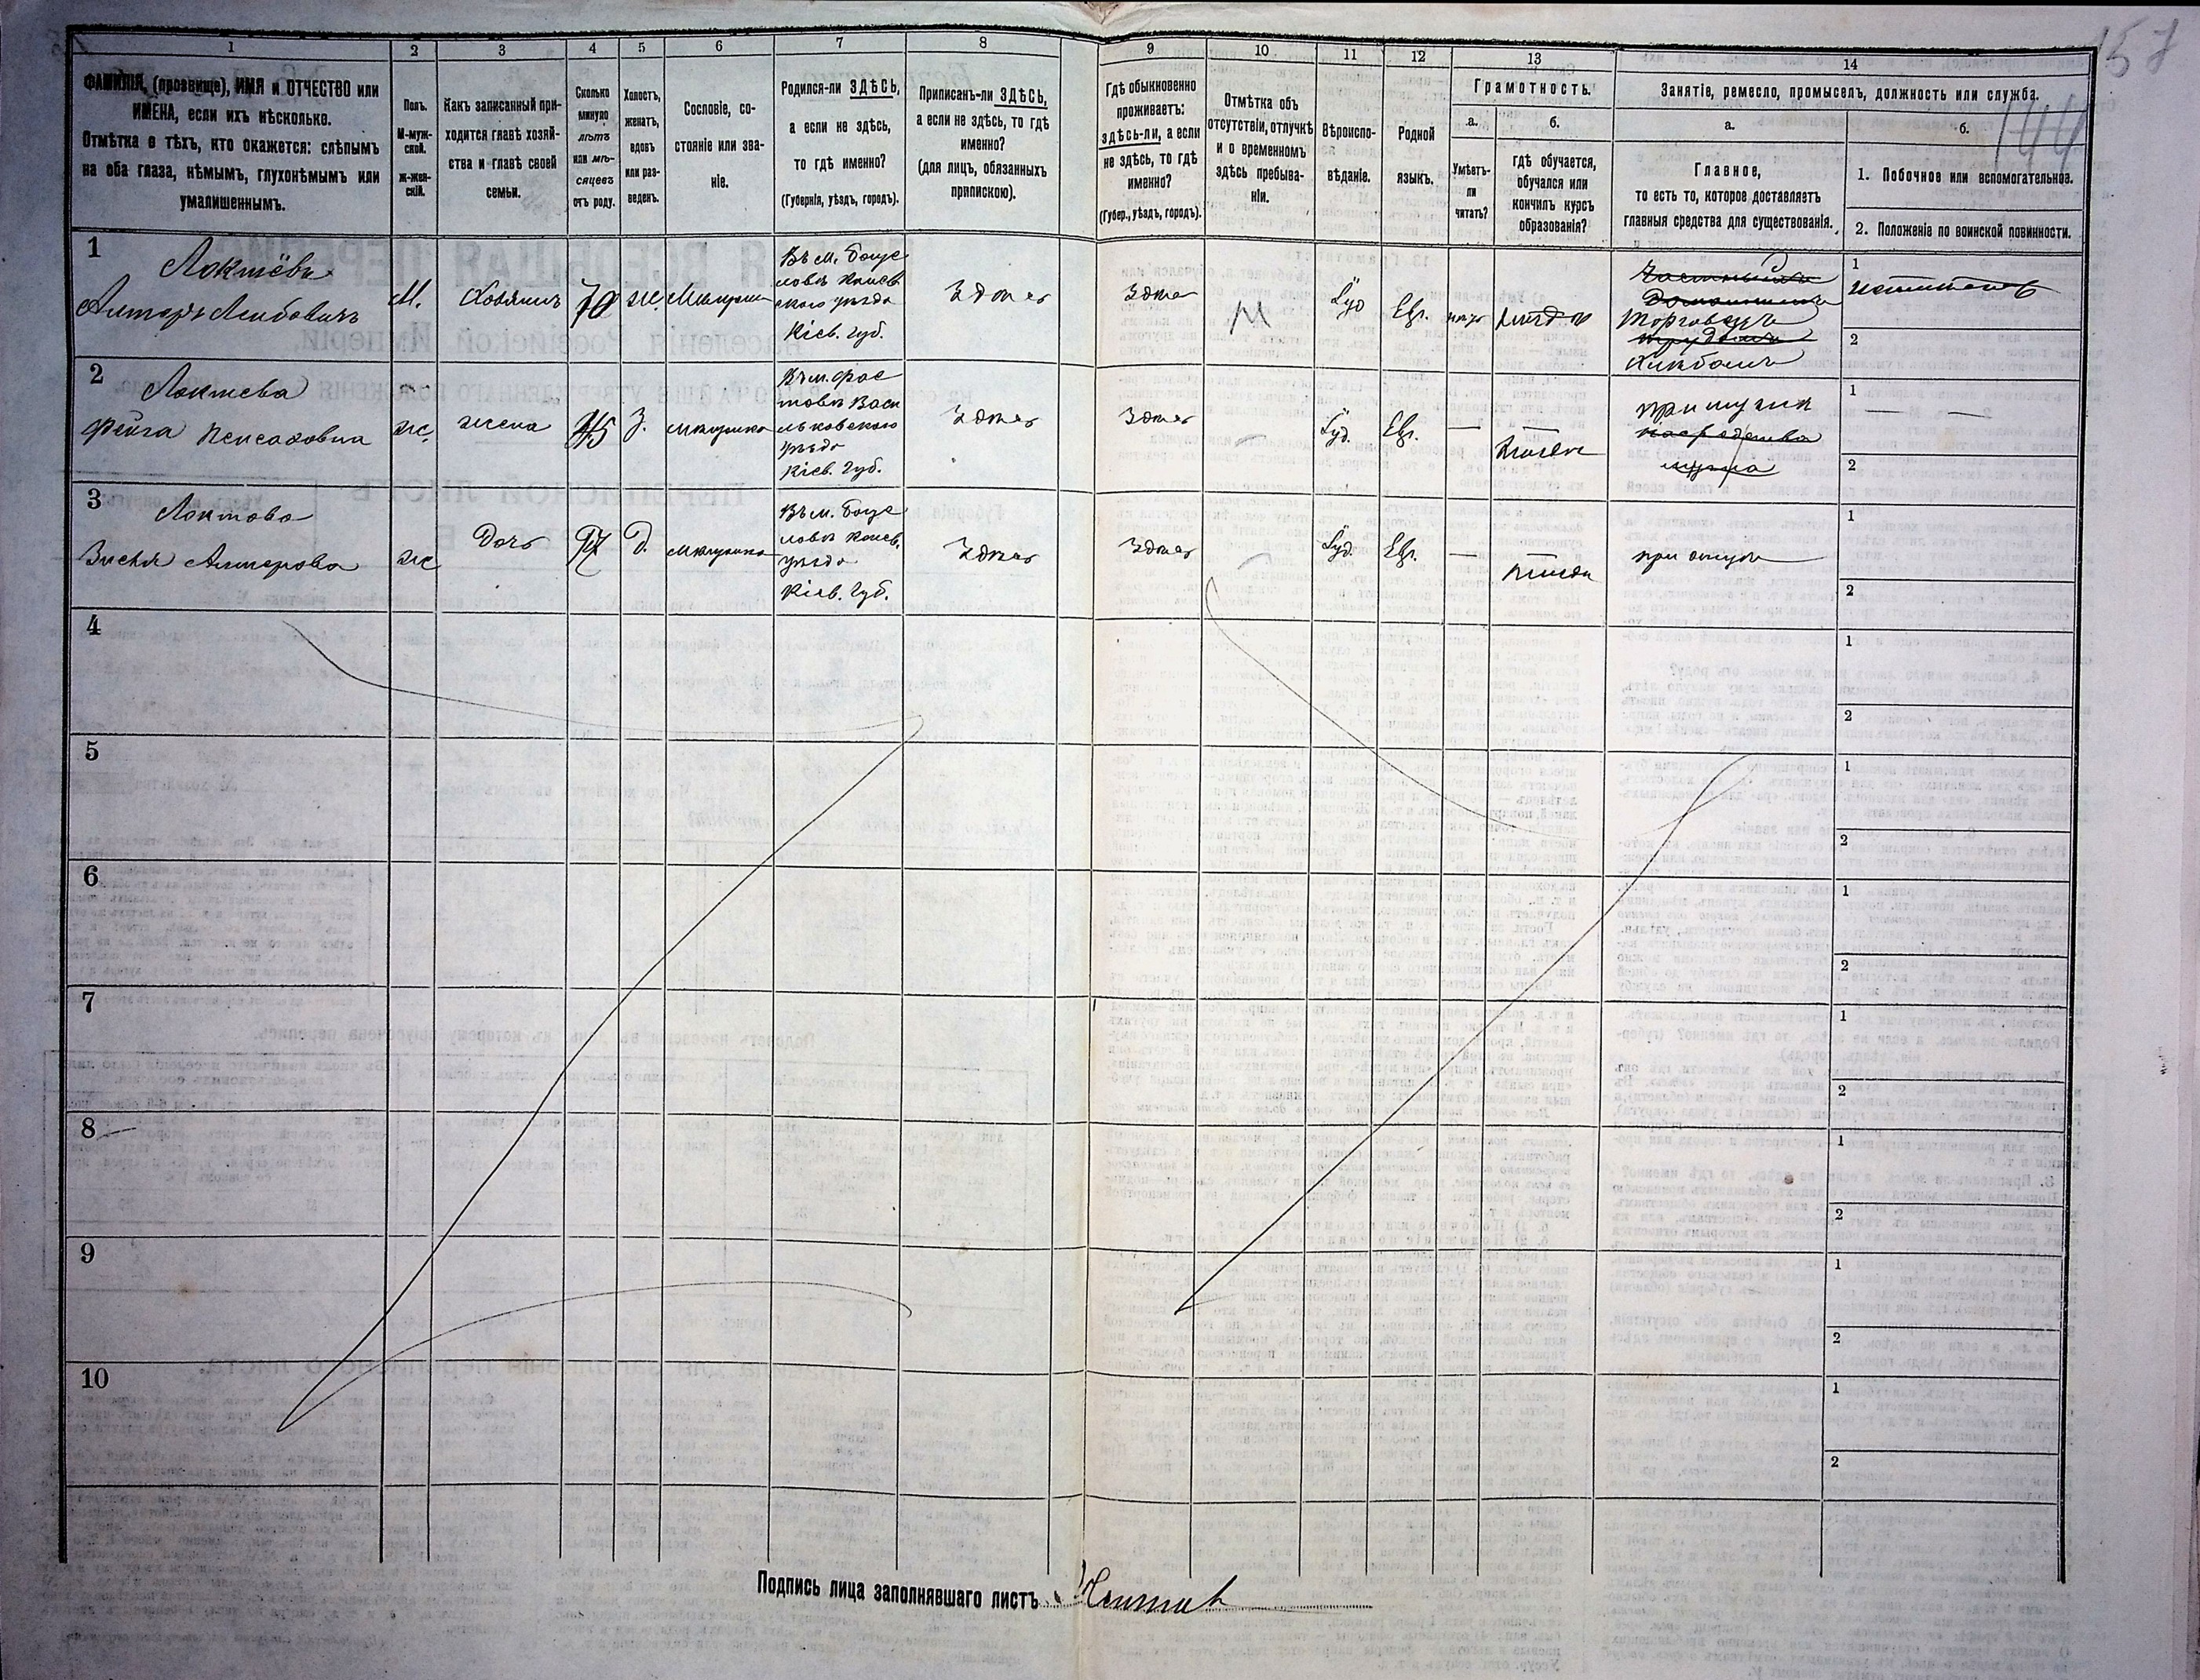 157
144
1 2 3 4 5 6 7 8 9 10 11 12 13 14
ФАМИЛІЯ, (прозвище), ИМЯ и ОТЧЕСТВО или
ИМЕНА, если ихъ нѣсколько.
Отмѣтка о тѣхъ, кто окажется: слѣпымъ
на оба глаза, нѣмымъ, глухонѣмымъ или
умалишеннымъ.
Полъ.
М-муж-
ской.
ж-жен-
скій.
Какъ записанный при-
ходится главѣ хозяй-
ства и главѣ своей
семьи.
Сколько
минуло
лѣтъ
или мѣ-
сяцевъ
отъ роду.
Холостъ,
женатъ,
вдовъ
или раз-
веденъ.
Сословіе, со-
стояніе или зва-
ніе.
Родился-ли ЗДѢСЬ,
а если не здѣсь,
то гдѣ именно?
(Губернія, уѣздъ, городъ).
Приписанъ-ли ЗДѢСЬ,
а если не здѣсь, то гдѣ
именно?
(для лицъ, обязанныхъ
припискою).
Гдѣ обыкновенно
проживаетъ:
здѣсь-ли, а если
не здѣсь, то гдѣ
именно?
(Губер., уѣздъ, городъ).
Отмѣтка объ
отсутствіи, отлучкѣ
и о временномъ
здѣсь пребыва-
ніи.
Вѣроиспо-
вѣданіе.
Родной
языкъ.
Грамотность.
а.
Умѣетъ-
ли
читать?
б.
гдѣ обучается,
обучался или
кончилъ курсъ
образованія?
Занятіе, ремесло, промыселъ, должность или служба.
а.
Главное,
то есть то, которое доставляетъ
главныя средства для существованія.
б.
1. Побочное или вспомогательное.
2. Положеніе по воинской повинности.
1
Локтёвъ
Алтеръ Лейбовичъ
М.
Хозяинъ
70
же.
Въ м. Богус
лавѣ Канев
скаго уѣзда
Кіев. Губ.
Здѣсь
Здѣсь
Іуд
Евр.
Торговецъ
Хлѣбомъ
1
2
2
Локтева
Фейга Пейсаховна
же.
жена
45
З.
мѣщанка
Въ м. Фас
товѣ Васи
льковского
уѣзда
Кіев. Губ.
Здѣсь
Здѣсь
Іуд.
Евр.
—
—
при мужѣ
1
— —
2
3
Локтева
Алтерова
же
Дочь
Д.
мѣщанка
Въ м. Богус
лавѣ Канев.
уѣзда
Кіев. Губ.
Здѣсь
Здѣсь
Іуд.
Евр.
—
—
при отцѣ
1
2
4
1
2
5
1
2
6
1
2
7
1
2
8
1
2
9
1
2
10
1
2
Подпись лица заполнявшаго листъ